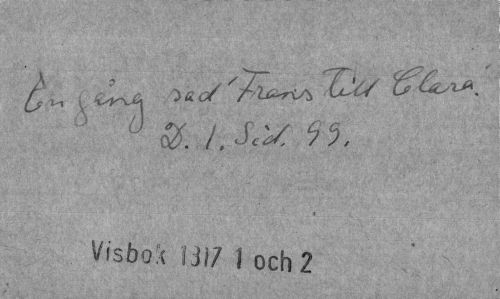 En gång sad' Frans till Clara.
D. 1. Sid. 99.
Visbok 1317 1 och 2